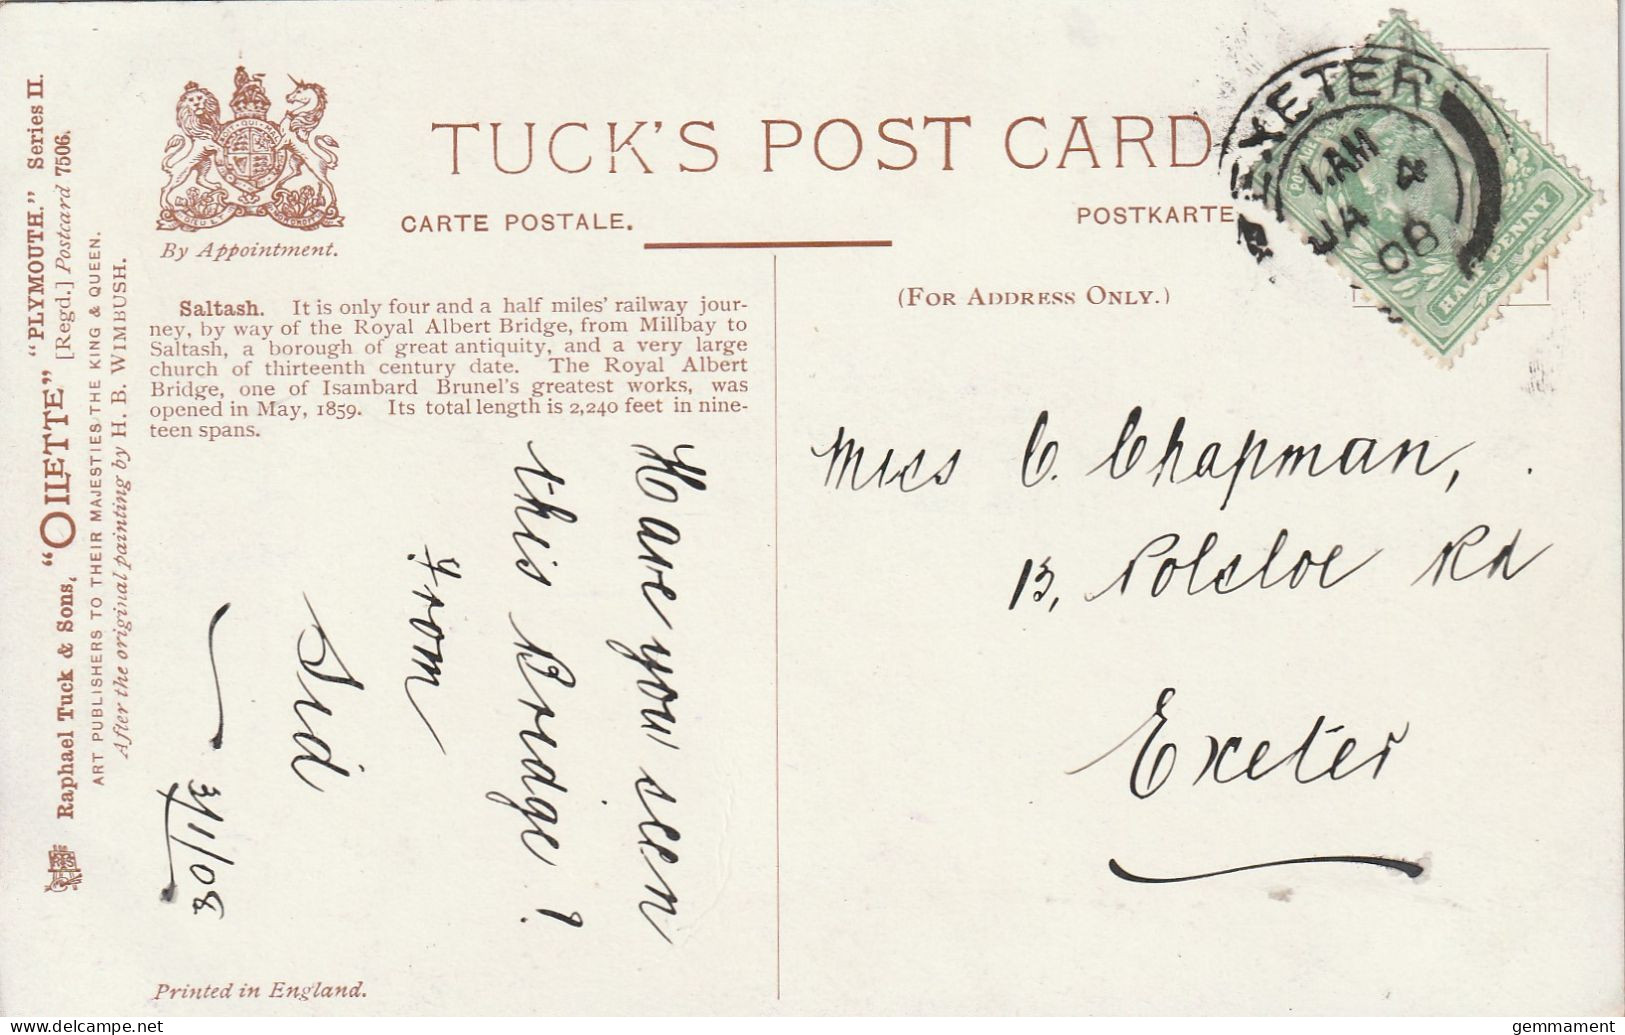 Raphael Tuck & Sons, "OILETTE" "PLYMOUTH." Series II.
[Regd.] Postcard 7506.
ART PUBLISHERS TO THEIR MAJESTIES THE KING & QUEEN.
After the original painting by H. B. WIMBUSH.
By Appointment.
TUCK'S POST CARD
CARTE POSTALE.
POSTKARTE
(FOR ADDRESS ONLY.)
Saltash. It is only four and a half miles' railway jour-
ney, by way of the Royal Albert Bridge, from Millbay to
Saltash, a borough of great antiquity, and a very large
church of thirteenth century date. The Royal Albert
Bridge, one of Isambard Brunel's greatest works, was
opened in May, 1859. Its total length is 2,240 feet in nine-
teen spans.
Have you seen
this Bridge?
From
Sid
3/1/08
EXETER
1.AM
JA 4
08
HALFPENNY
Miss C. Chapman,
13, Polsloe Rd
Exeter
Printed in England.
www.delcampe.net
gemmament